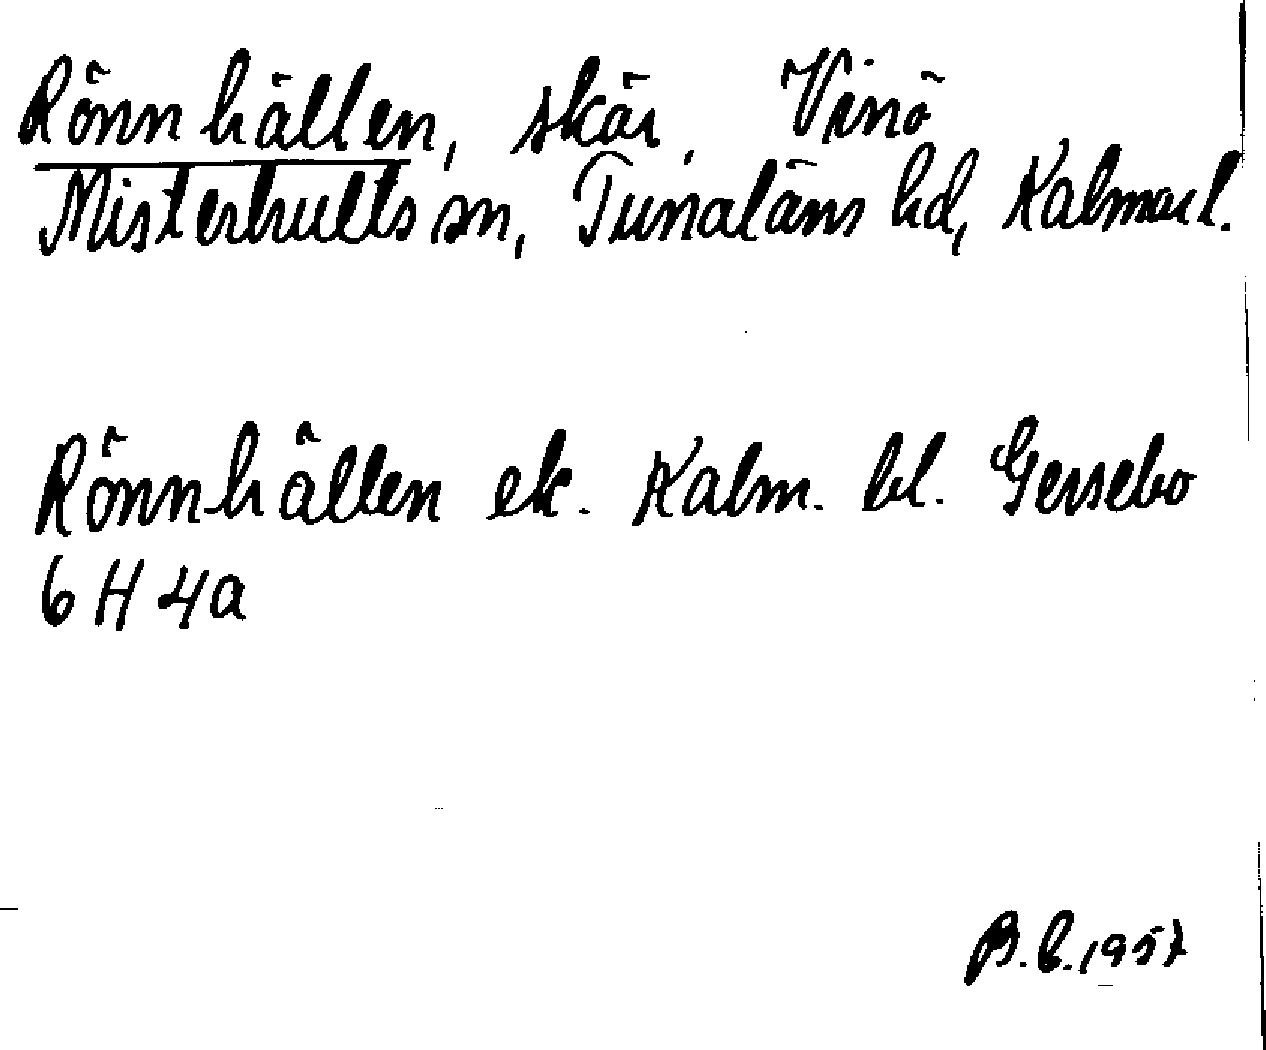 Rönnhällen, skär, Vinö
Misterhults sn, Tunaläns hd, Kalmar l.
Rönnhällen ek. Kalm. bl. Gersebo
6 H 4a
B.E. 1957